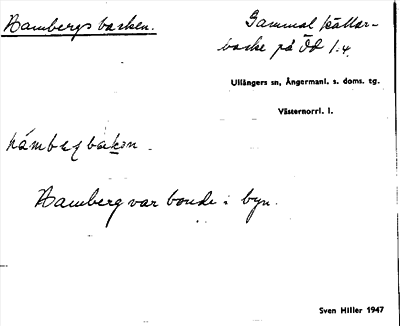 Hambergsbacken.
Gammal källar-
backe på Öd 1:4.
Ullångers sn, Ångermanl. s. doms. tg.
Västernorrl. l.
hámbæʒbakən
Hamberg var bonde i byn.
Sven Hiller 1947